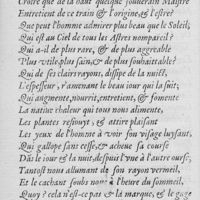 Croire que de là haut quelque souuerain Maistre
Entretient de ce train & l'origine & l'estre?
Que peut l'homme admirer plus beau que le Soleil,
Qui est au Ciel de tous les Astres nompareil?
Qui a-il de plus rare, & de plus aggreable
Plus vtile, plus sain, & de plus souhaittable?
Qui de ses clairs rayons, dissipe de la nuict,
L'espesseur, r'amenant le beau iour qui la suit;
Qui augmente, nourrit, entretient, & fomente
La natiue chaleur qui tous nous alimente,
Les plantes resiouyt, & attire plaisant
Les yeux de l'homme à voir son visage luysant,
Qui gallope sans cesse, & acheue sa course
Dás le iour & la nuit, depuis l'vne à l'autre ourse;
Tantost nous allumant de son rayon vermeil,
Et le cachant soubs nous à l'heure du sommeil,
Quoy? cela n'est-ce pas & la marque, & le gage